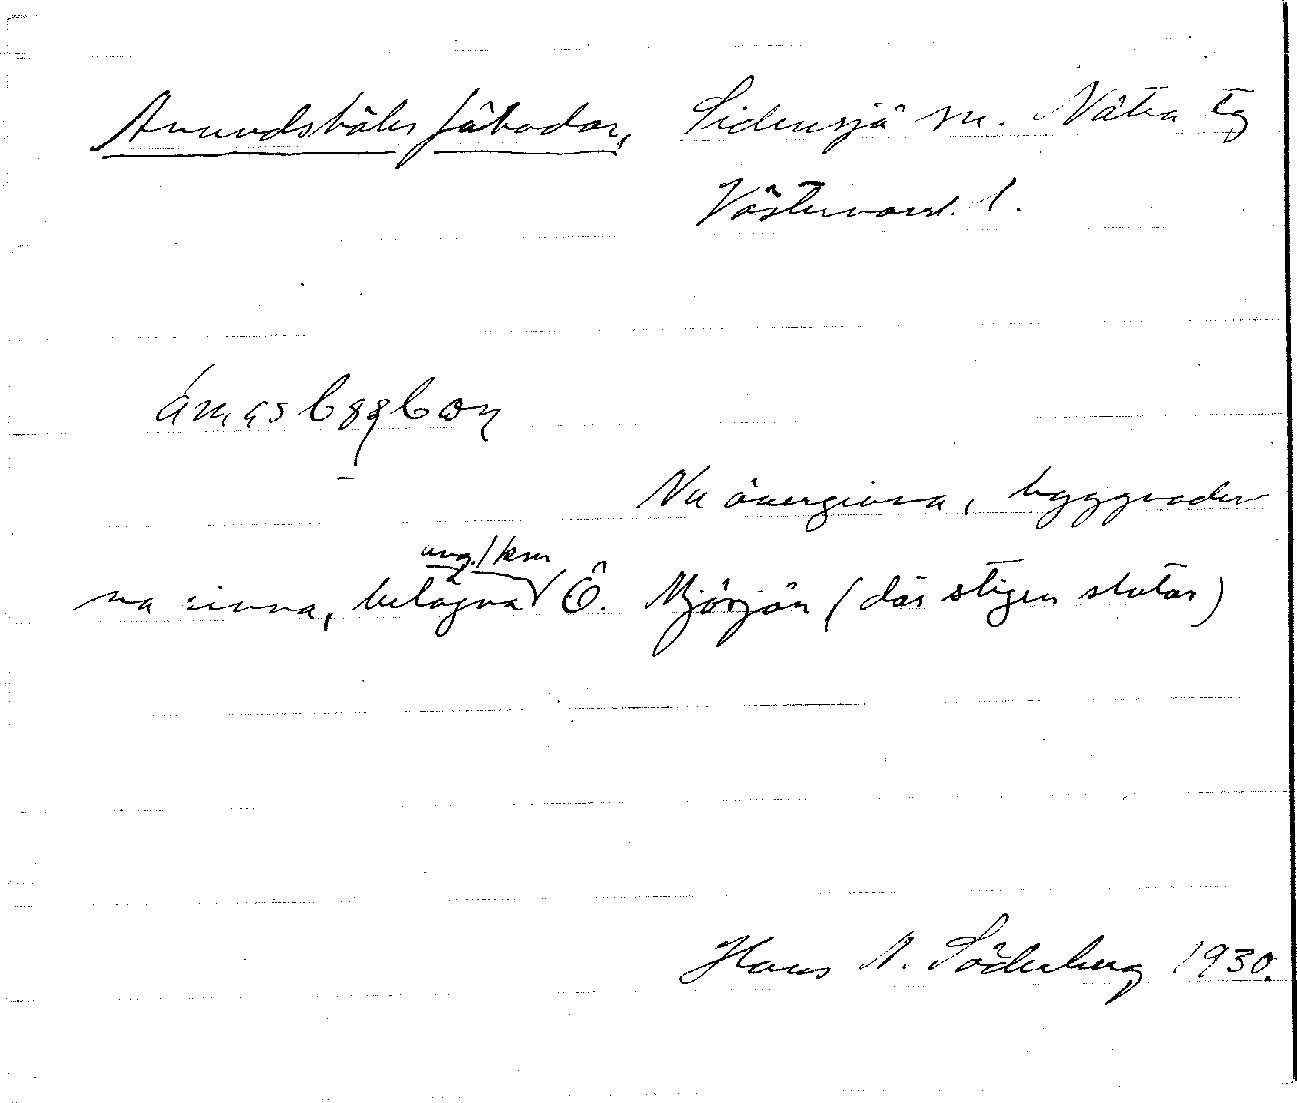 Anundsböles fäbodar, Sidensjö sn. Nätra tg
Västernorrl. l.
Nu övergivna, byggnader-
na rivna, belägna ung. 1 km Ö. Mjösjön (där stigen slutar)
Hans N. Söderberg 1930.